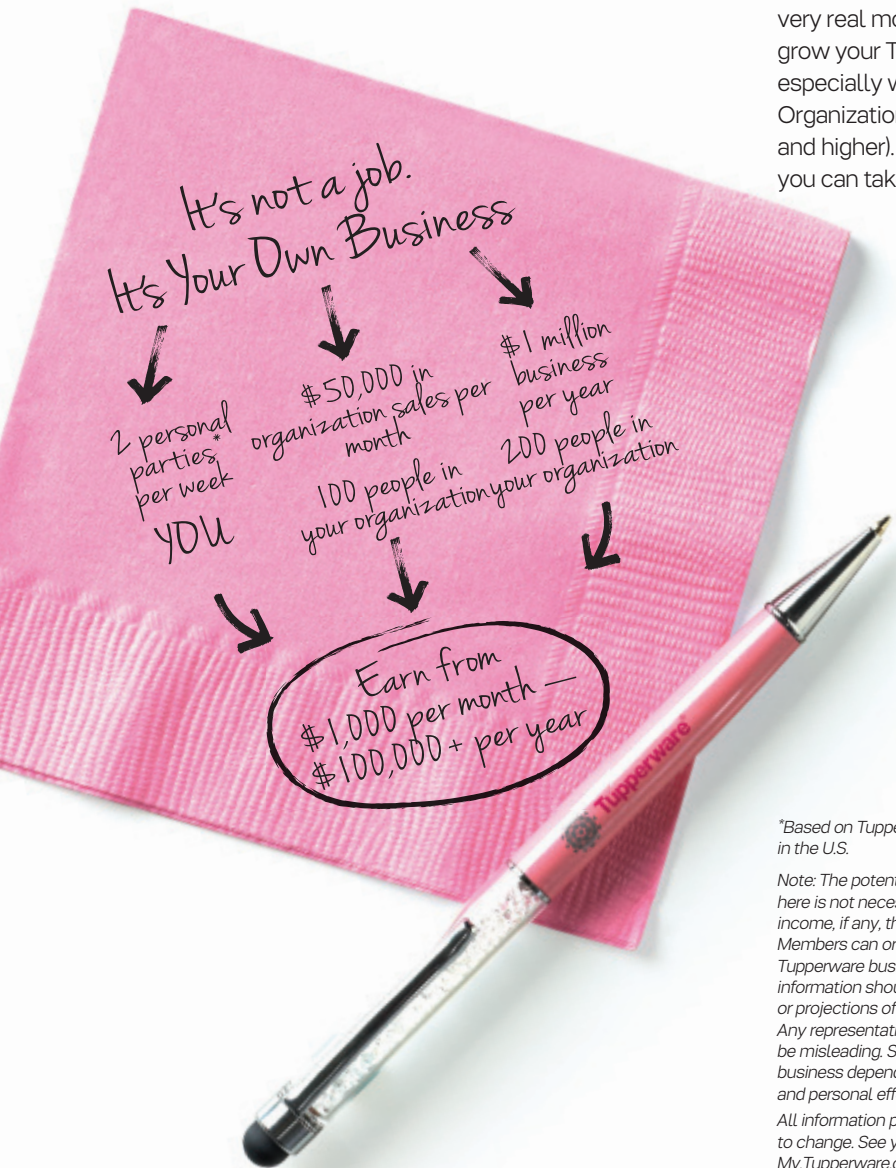 very real mo
grow your T
especially w
Organization
and higher).
you can tak
It's not a job.
It's Your Own Business
2 personal
parties*
per week
YOU
$50,000 in
organization sales per
month
100 people in
your organization
$1 million
business
per year
200 people in
your organization
Earn from
$1,000 per month —
$100,000+ per year
Tupperware®
*Based on Tuppe
in the U.S.
Note: The potent
here is not neces
income, if any, th
Members can or
Tupperware bus
information shou
or projections of
Any representati
be misleading. S
business depend
and personal eff
All information p
to change. See y
My.Tupperware.c